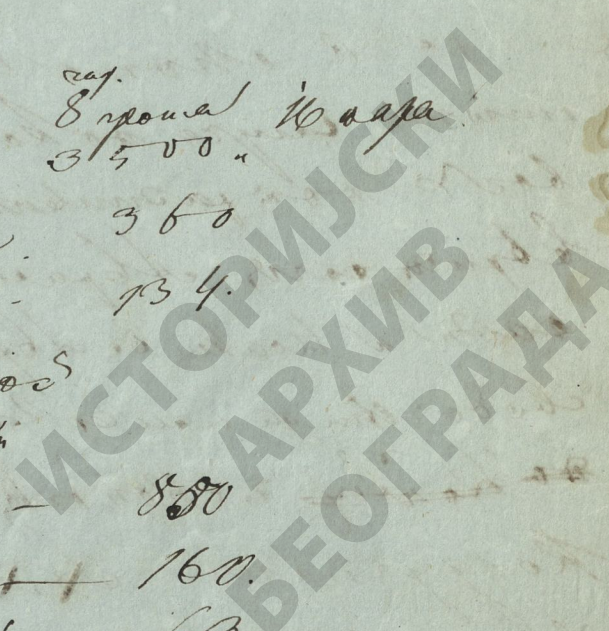 чар.
8 гроша 16 пара
3500 „
360
134.
ИСТОРИЈСКИ
АРХИВ
БЕОГРАДА
160.